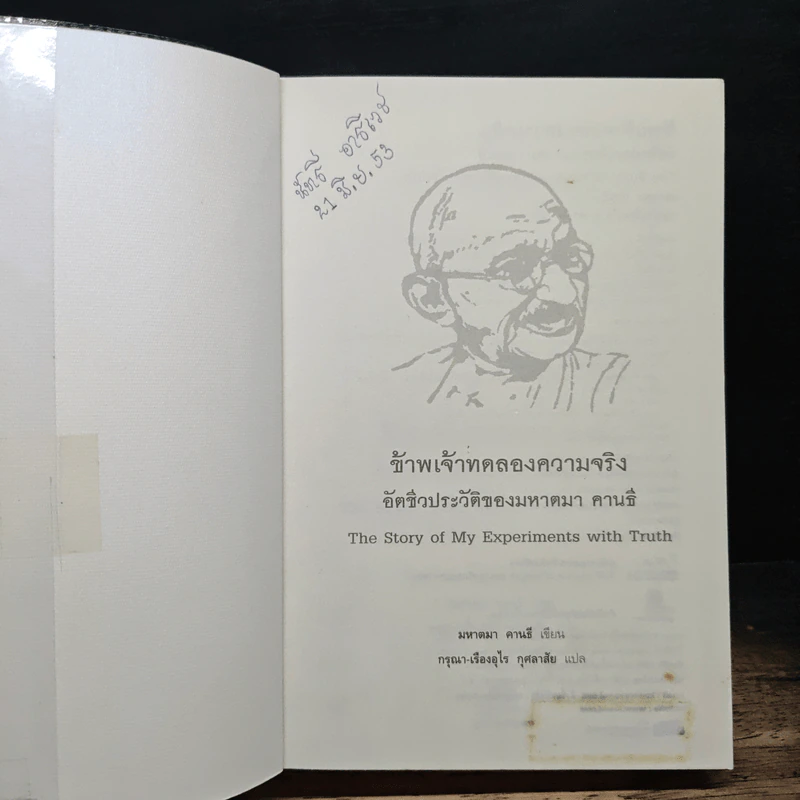 21 มิ.ย. 53
ข้าพเจ้าทดลองความจริง
อัตชีวประวัติของมหาตมา คานธี
The Story of My Experiments with Truth
มหาตมา คานธี เขียน
กรุณา-เรืองอุไร กุศลาสัย แปล